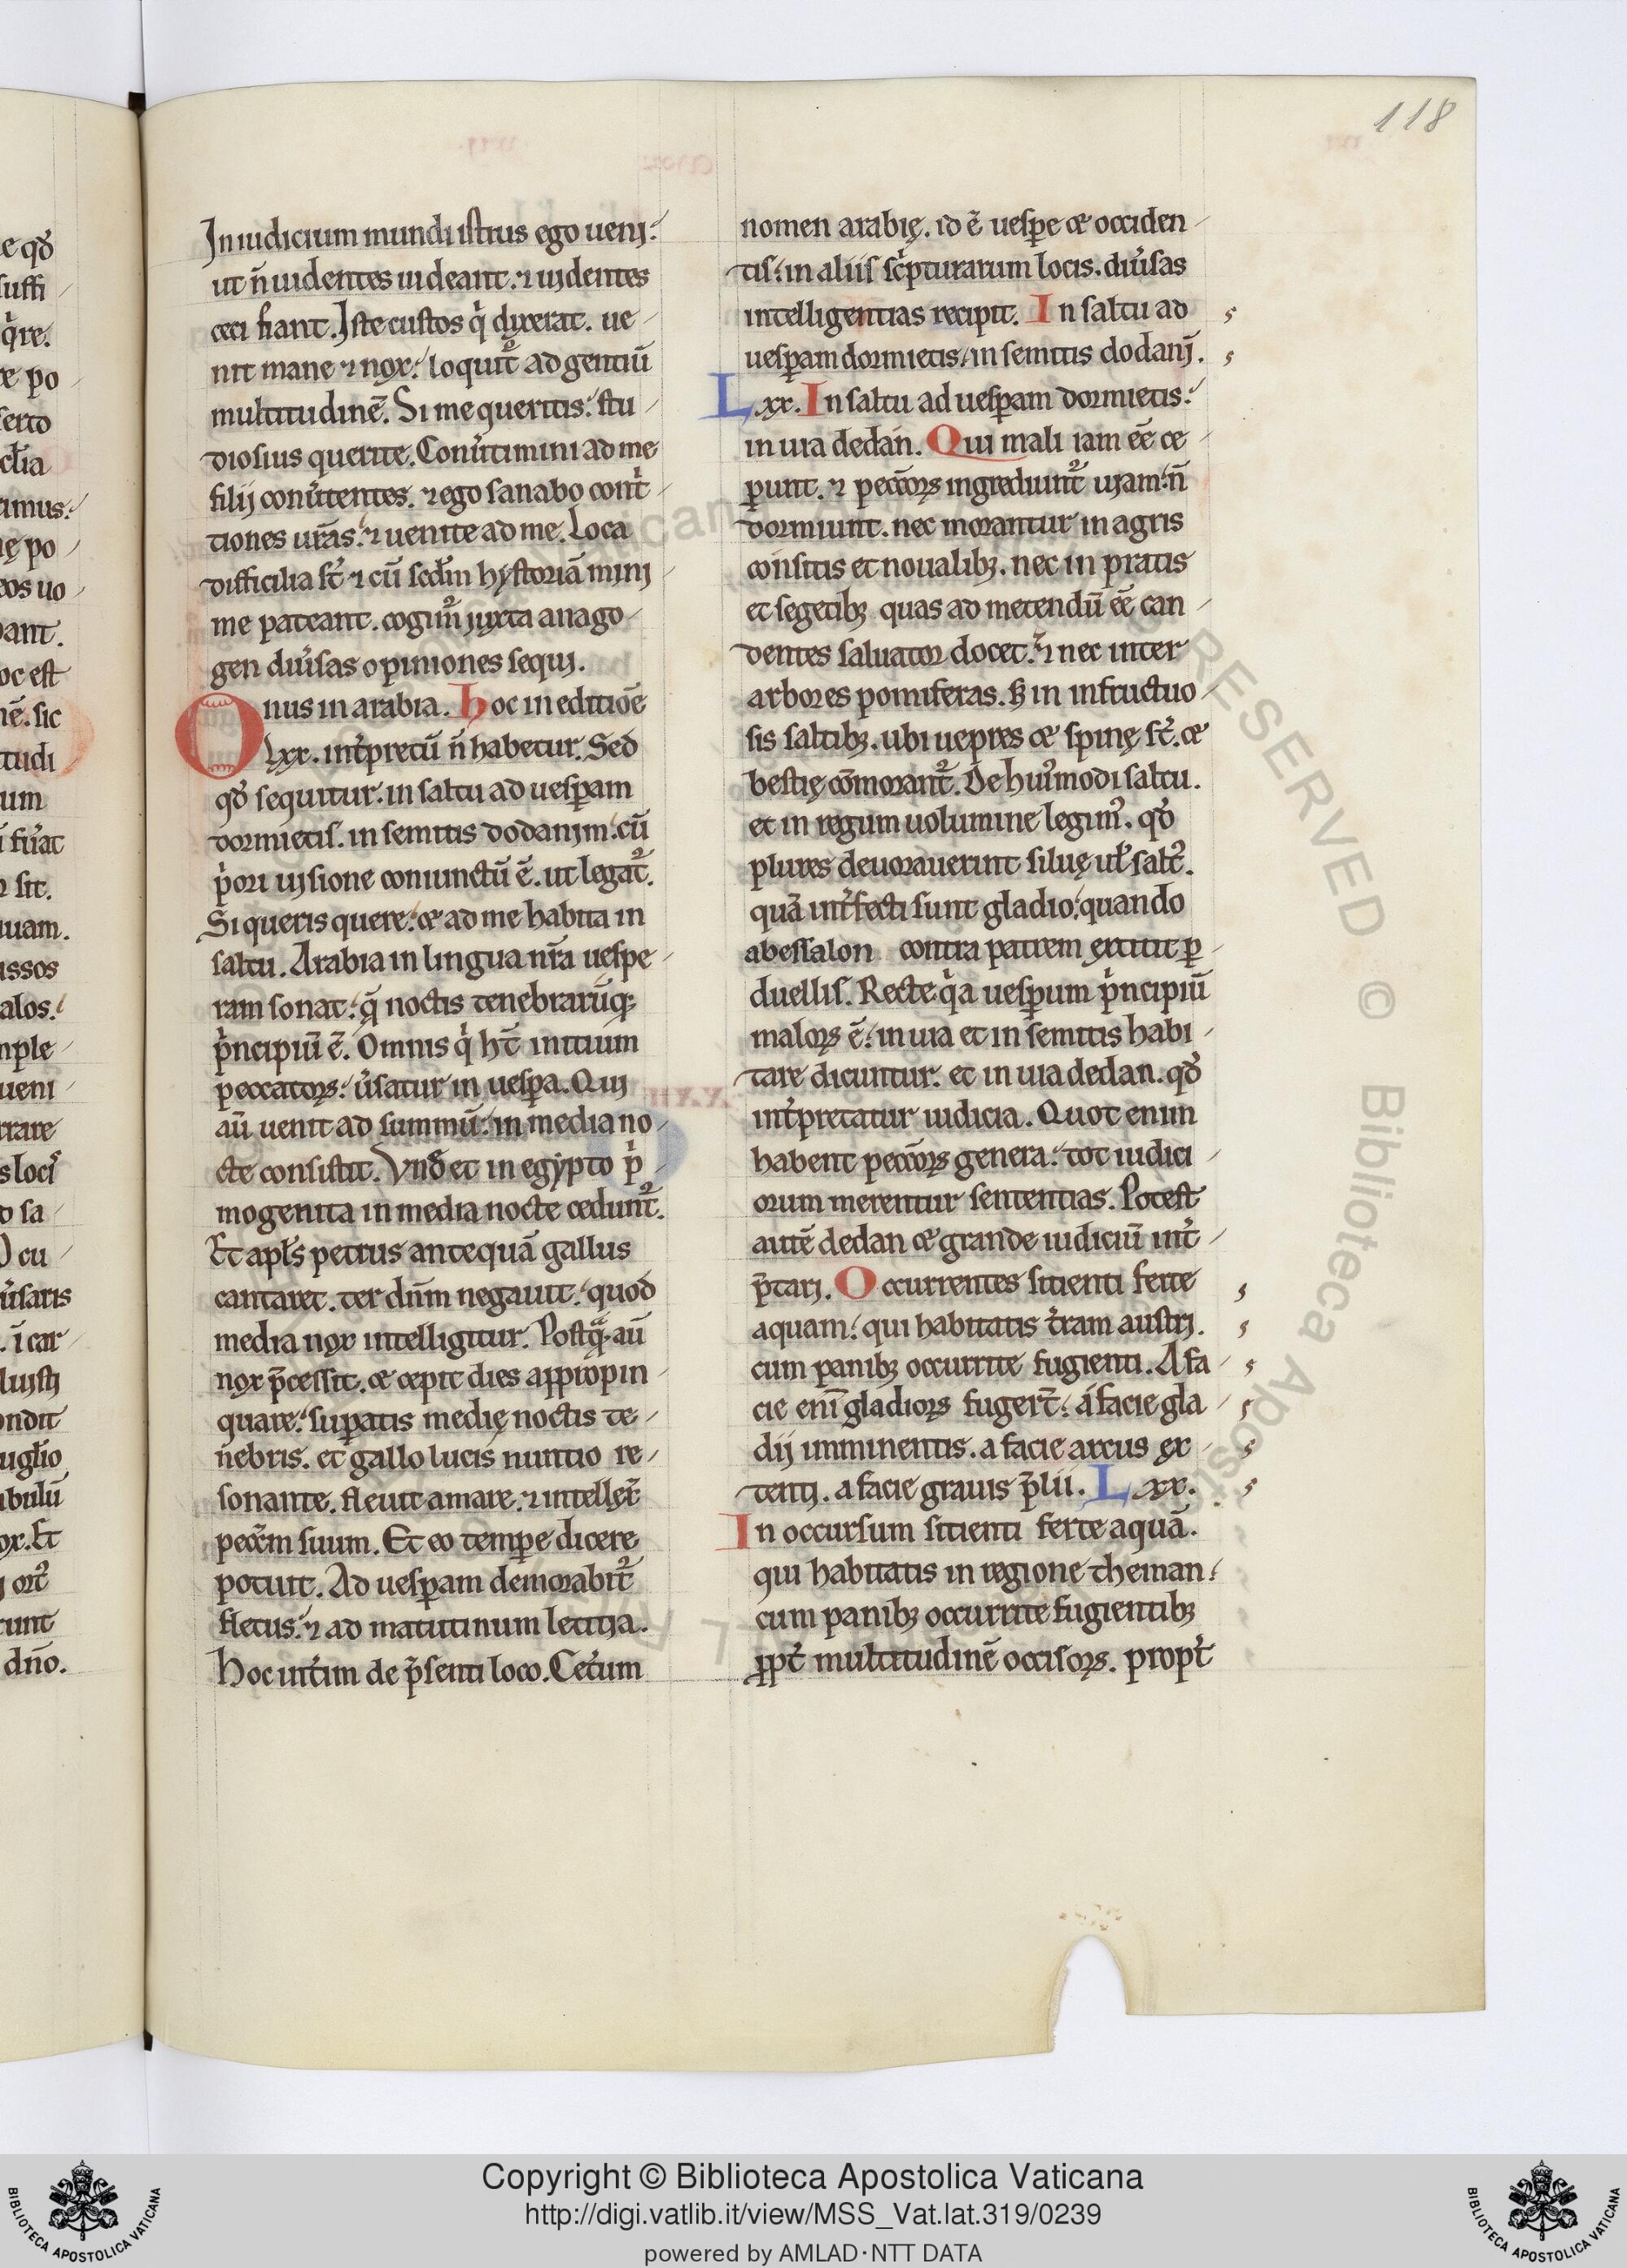 118
In iudicium mundi istius ego uenj:
ut ñ uidentes uideant. ⁊ uidentes
ceci fiant. Iste custos q̇ dyxerat. ue
nit mane ⁊ nox: loquit᷑ ad gentiū
multitudinē. Si me queritis: stu
diosius querite. Conu̓timini ad me
filij conu̓tentes. ⁊ ego sanabo cont̓
tiones ur̄as: ⁊ uenite ad me. Loca
difficilia st̓ ⁊ cū scd̄m hystoriā minj
me pateant. cogim᷒ juxta anago
gen diu̓sas opiniones sequj.
Onus in arabia. Hoc in editiōe
lxx. int̓pretū ñ habetur. Sed
qd̓ sequitur: in saltu ad uesꝑam
dormietis. in semitis dodanim: cū
p̓ori uisione coniunctū ē. ut legat᷑.
Si queris quere: ⁊ ad me habita in
saltu. Arabia in lingua nr̄a uespe
ram sonat: q̄ noctis tenebrarūq;
p̓ncipiū ē. Omnis q̇ ht̄ initium
peccatoꝝ: u̓satur in uesꝑa. Qui
aū uenit ad summū: in media no
cte consistit. Vnd̓ et in egypto p̓
mogenita in media nocte cedunt᷑.
Et apl̄s petrus antequā gallus
cantaret. ter dn̄m negauit: quod
media nox intelligitur. Postꝗ̄ aū
nox p̄cessit. ⁊ cepit dies appropin
quare: suꝑatis medię noctis te
nebris. et gallo lucis nuntio re
sonante. fleuit amare. ⁊ intellex̄
pecc̄m suum. Et eo tempe dicere
potuit. Ad uesꝑam demorabit᷑
fletus: ⁊ ad matutinum letitia.
Hoc int̓im de p̄senti loco. Cet̓um
nomen arabię. id ē uesꝑe ⁊ occiden
tis: in aliis sc̓pturarum locis. diu̓sas
intelligentias recipit. In saltu ad
uesꝑam dormietis: in semitis dodanj̄.
Lxx. In saltu ad uesꝑam dormietis:
in uia dedan. Qui mali iam eē ce
ꝑunt. ⁊ pecc̄oꝝ ingrediunt᷑ uiam: ñ
dormiunt. nec morantur in agris
consitis et noualibꝫ. nec in pratis
et segetibꝫ quas ad metendū eē can
dentes saluator docet: ⁊ nec inter
arbores pomiferas. ꞩ in infructuo
sis saltibꝫ. ubi uepres ⁊ spinę st̓. ⁊
bestię cōmorant᷑. De hui᷒modi saltu.
et in regum uolumine legim᷒. qd̓
plures deuorauerint siluę ut̓ salt᷒.
quā int̓fecti sunt gladio: quando
abessalon contra patrem extitit ꝑ
duellis. Recte q̓a uesꝑum p̓ncipiū
maloꝝ ē: in uia et in semitis habi
tare dicuntur. et in uia dedan. qd̓
int̓pretatur iudicia. Quot enim
habent pecc̄oꝝ genera: tot iudici
orum merentur sententias. Potest
autē dedan ⁊ grande iudiciū int̓
p̄tarj. Occurrentes sitienti ferte
aquam: qui habitatis t̓ram austrj.
cum panibꝫ occurrite fugienti. A fa
cie enī gladioꝝ fuger̄t: á facie gla
dij imminentis. a facie arcus ex
tentj. a facie grauis p̄lii. Lxx.
In occursum sitienti ferte aquā.
qui habitatis in regione theman:
cum panibꝫ occurrite fugientibꝫ
ꝓpt̓ multitudinē occisoꝝ. propt̓
Copyright © Biblioteca Apostolica Vaticana
http://digi.vatlib.it/view/MSS_Vat.lat.319/0239
powered by AMLAD·NTT DATA
BIBLIOTECA APOSTOLICA VATICANA
BIBLIOTECA APOSTOLICA VATICANA